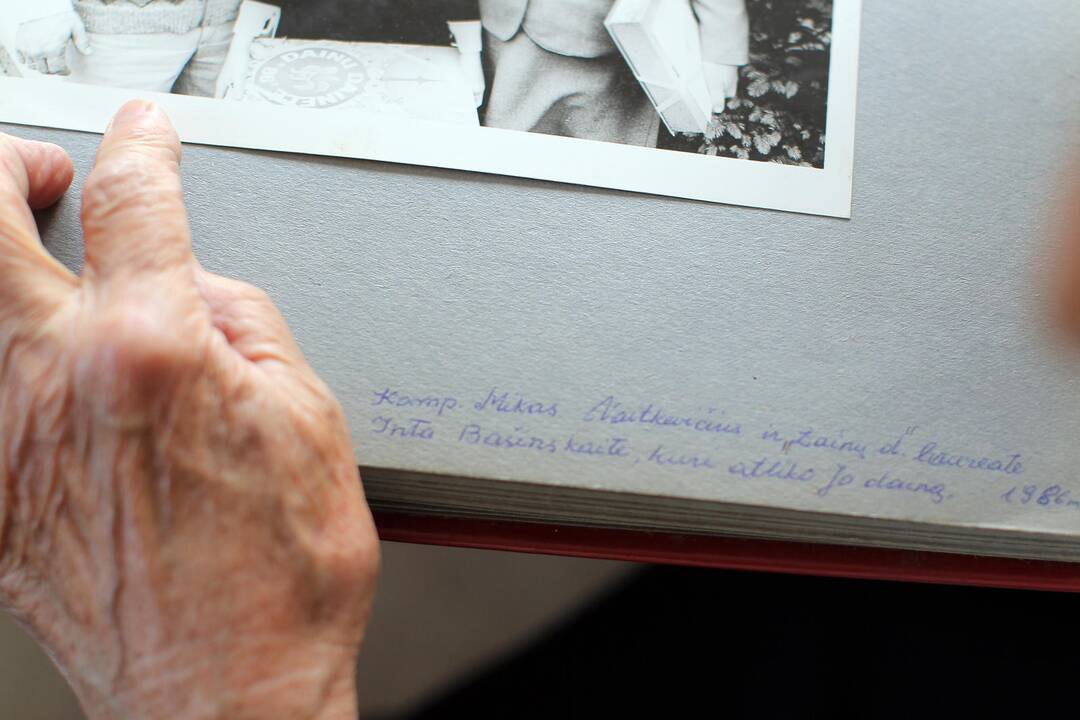 DAINŲ DAINELĖ 86
Komp. Mikas Vaitkevičius ir „Dainų d." laureatė
Inta Bašinskaitė, kuri atliko Jo dainą. 1986m